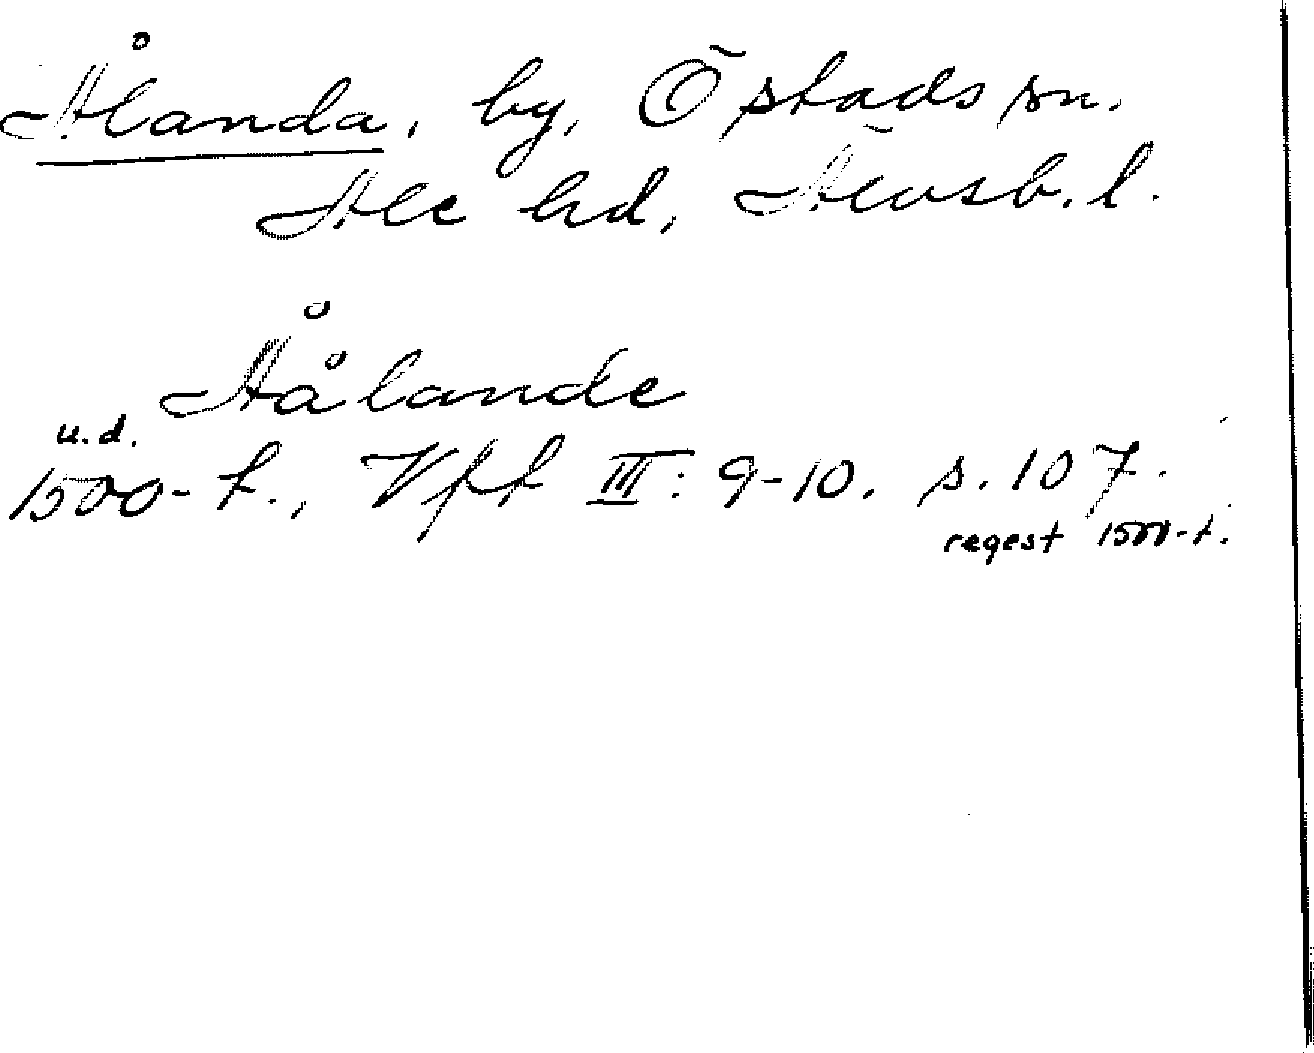 Ålanda, by, Östads sn.
Ale hd, Älvsb. l.
Åålande
u.d.
1500-t., Vff III: 9-10. s. 107.
regest 1500-t.